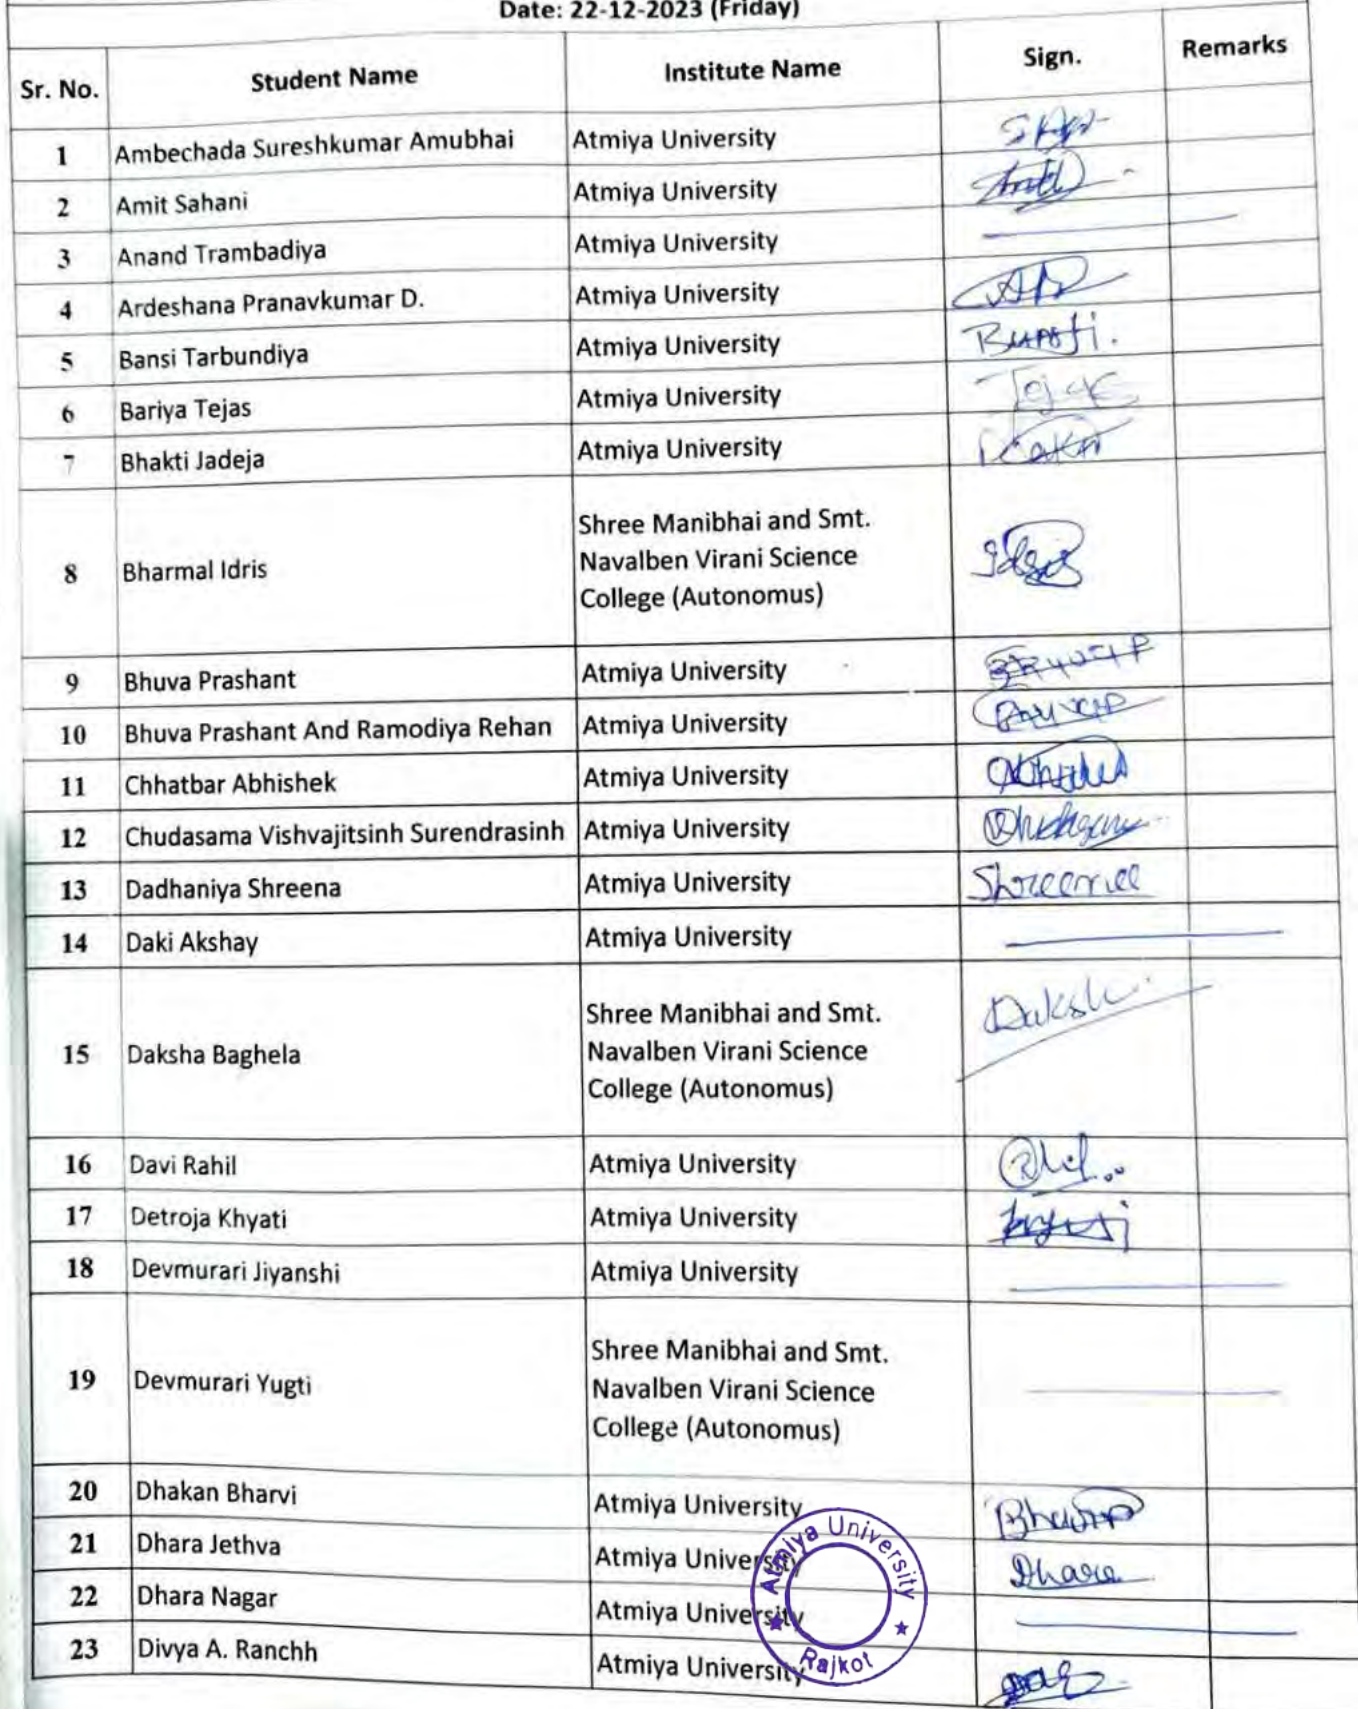 Date: 22-12-2023 (Friday)
Sr. No. Student Name Institute Name Sign. Remarks
1 Ambechada Sureshkumar Amubhai Atmiya University
2 Amit Sahani Atmiya University
3 Anand Trambadiya Atmiya University
4 Ardeshana Pranavkumar D. Atmiya University
5 Bansi Tarbundiya Atmiya University
6 Bariya Tejas Atmiya University Tejas
7 Bhakti Jadeja Atmiya University
8 Bharmal Idris Shree Manibhai and Smt.
Navalben Virani Science
College (Autonomus)
9 Bhuva Prashant Atmiya University
10 Bhuva Prashant And Ramodiya Rehan Atmiya University
11 Chhatbar Abhishek Atmiya University
12 Chudasama Vishvajitsinh Surendrasinh Atmiya University
13 Dadhaniya Shreena Atmiya University
14 Daki Akshay Atmiya University
15 Daksha Baghela Shree Manibhai and Smt.
Navalben Virani Science
College (Autonomus)
16 Davi Rahil Atmiya University
17 Detroja Khyati Atmiya University
18 Devmurari Jiyanshi Atmiya University
19 Devmurari Yugti Shree Manibhai and Smt.
Navalben Virani Science
College (Autonomus)
20 Dhakan Bharvi Atmiya University
21 Dhara Jethva Atmiya University Dhara
22 Dhara Nagar Atmiya University
23 Divya A. Ranchh Atmiya University
Atmiya University
Rajkot